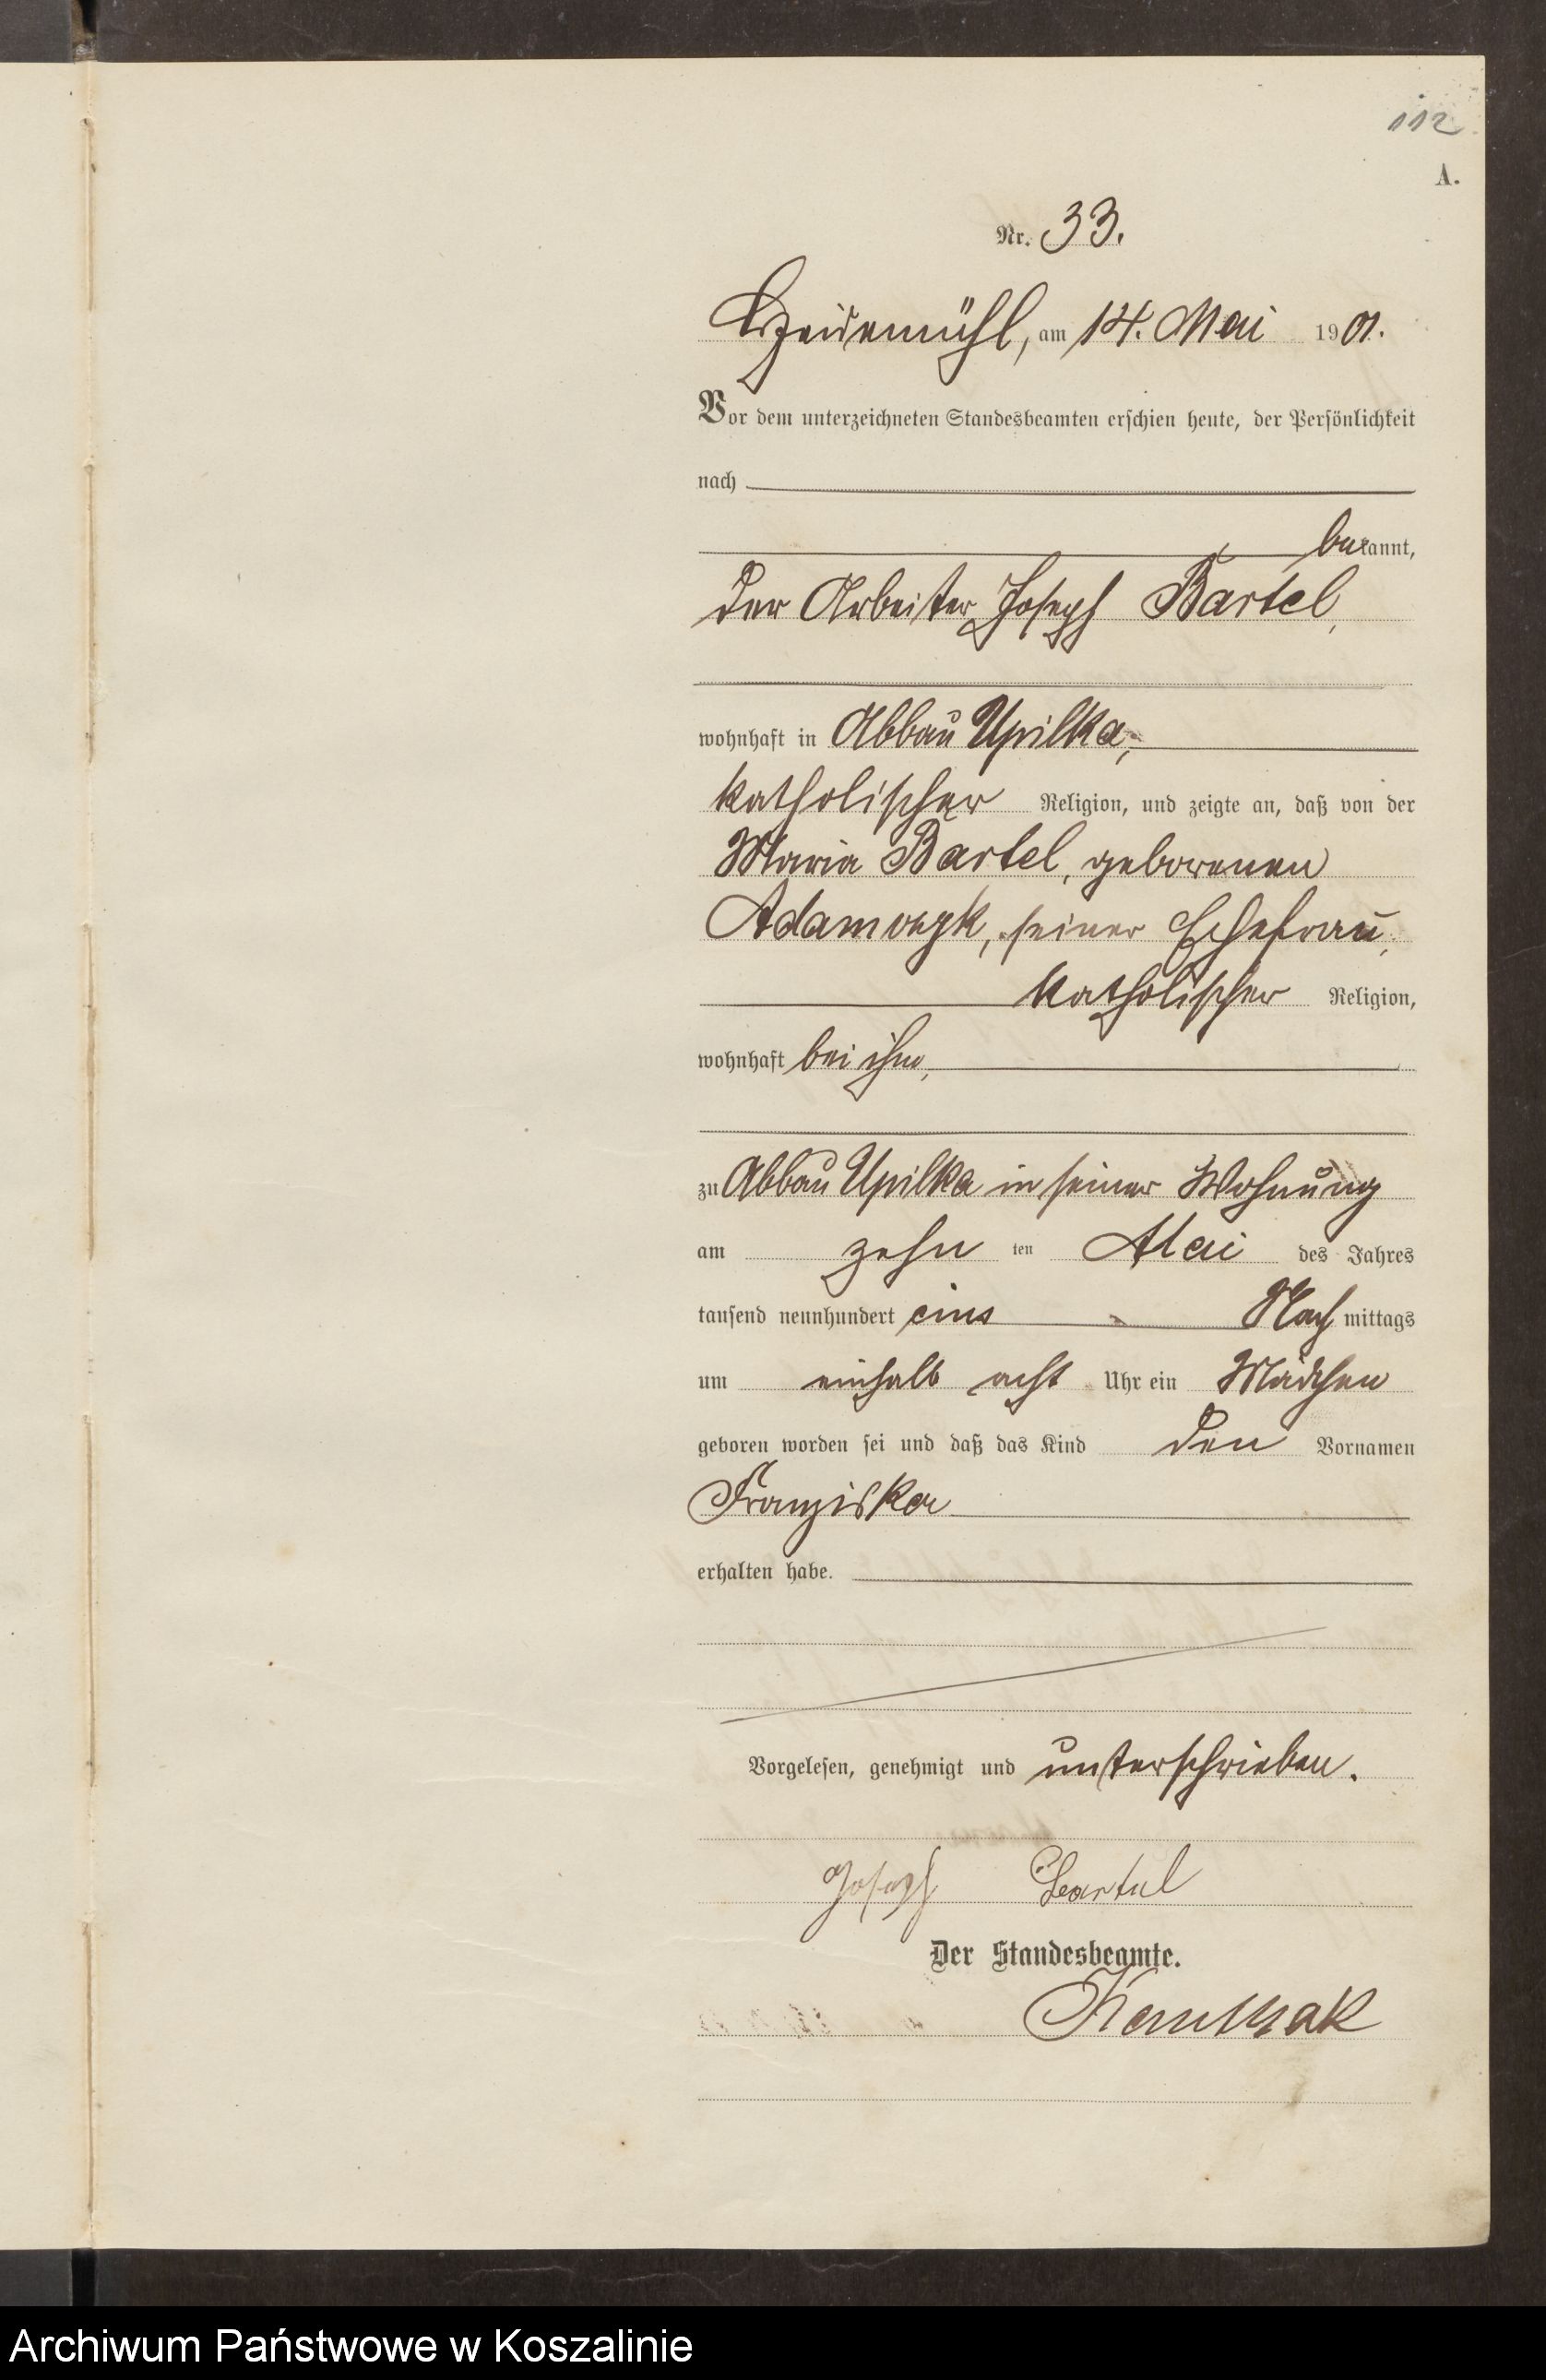 112
A.
Nr. 33.
am 14. Mai 1901.
Vor dem unterzeichneten Standesbeamten erschien heute, der Persönlichkeit
nach
bekannt,
der Arbeiter Joseph Bartel,
wohnhaft in Abbau Upilka,
katholischer Religion, und zeigte an, daß von der
Maria Bartel, geborenen
Adamczyk, seiner Ehefrau,
katholischer Religion,
wohnhaft bei ihm,
zu Abbau Upilka in seiner Wohnung
am zehn ten Mai des Jahres
tausend neunhundert eins Nach mittags
um einhalb acht Uhr ein Mädchen
geboren worden sei und daß das Kind den Vornamen
Franziska
erhalten habe.
Vorgelesen, genehmigt und unterschrieben.
Joseph Bartel
Der Standesbeamte.
Archiwum Państwowe w Koszalinie